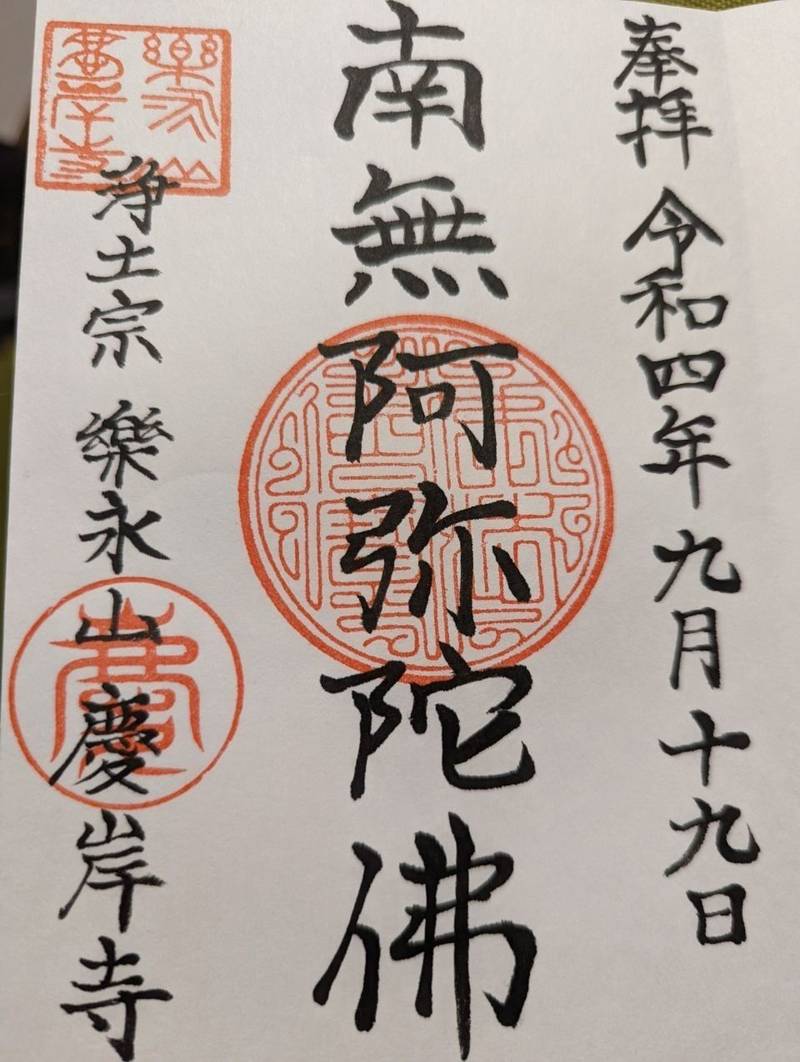 奉拝 令和四年九月十九日
南無阿弥陀佛
浄土宗 樂永山 慶岸寺